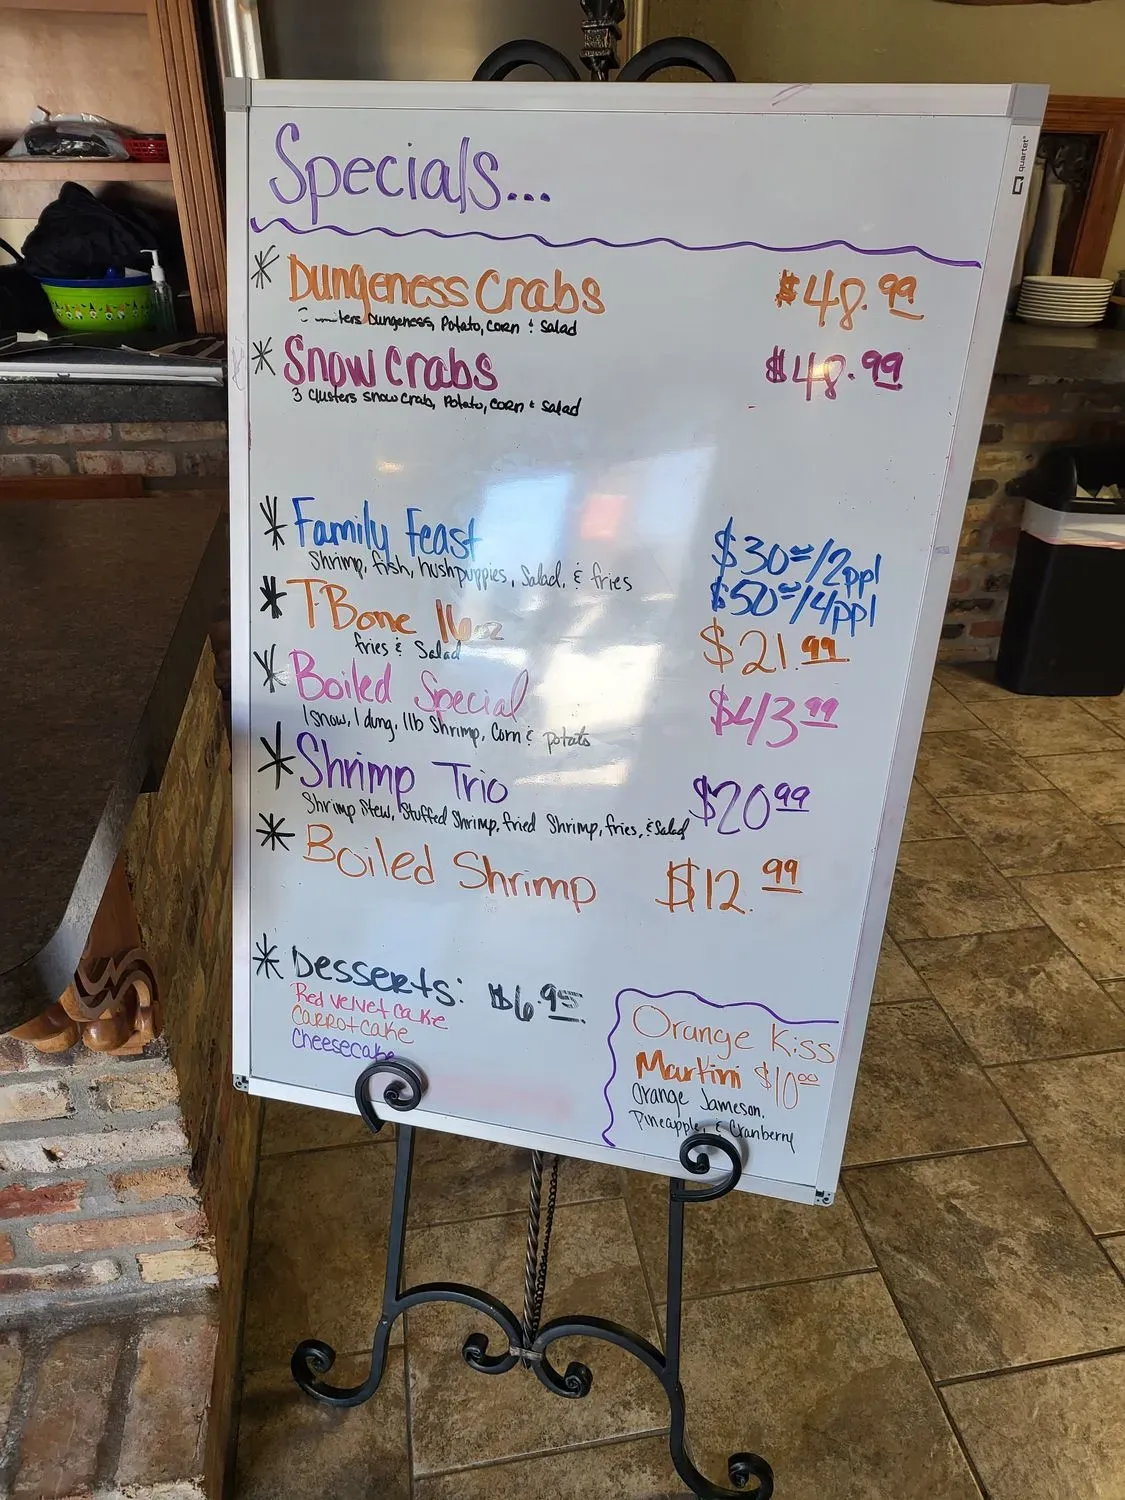 Specials...
* Dungeness Crabs $48.99
Dungeness, Potato, corn & Salad
* Snow Crabs $48.99
3 clusters snow crab, Potato, corn & Salad
* Family Feast $30⁰⁰/2ppl
Shrimp, fish, hushpuppies, Salad, & fries $50⁰⁰/4ppl
* T-Bone 16oz $21.99
fries & Salad
* Boiled Special $43.99
1 snow, 1 dung, 1lb Shrimp, Corn & potato
* Shrimp Trio $20.99
Shrimp Stew, Stuffed Shrimp, fried Shrimp, fries, & Salad
* Boiled Shrimp $12.99
* Desserts: $6.95
Red Velvet Cake
Carrot Cake
Cheesecake
Orange Kiss
Martini $10⁰⁰
Orange Jameson,
Pineapple, & Cranberry
quartet